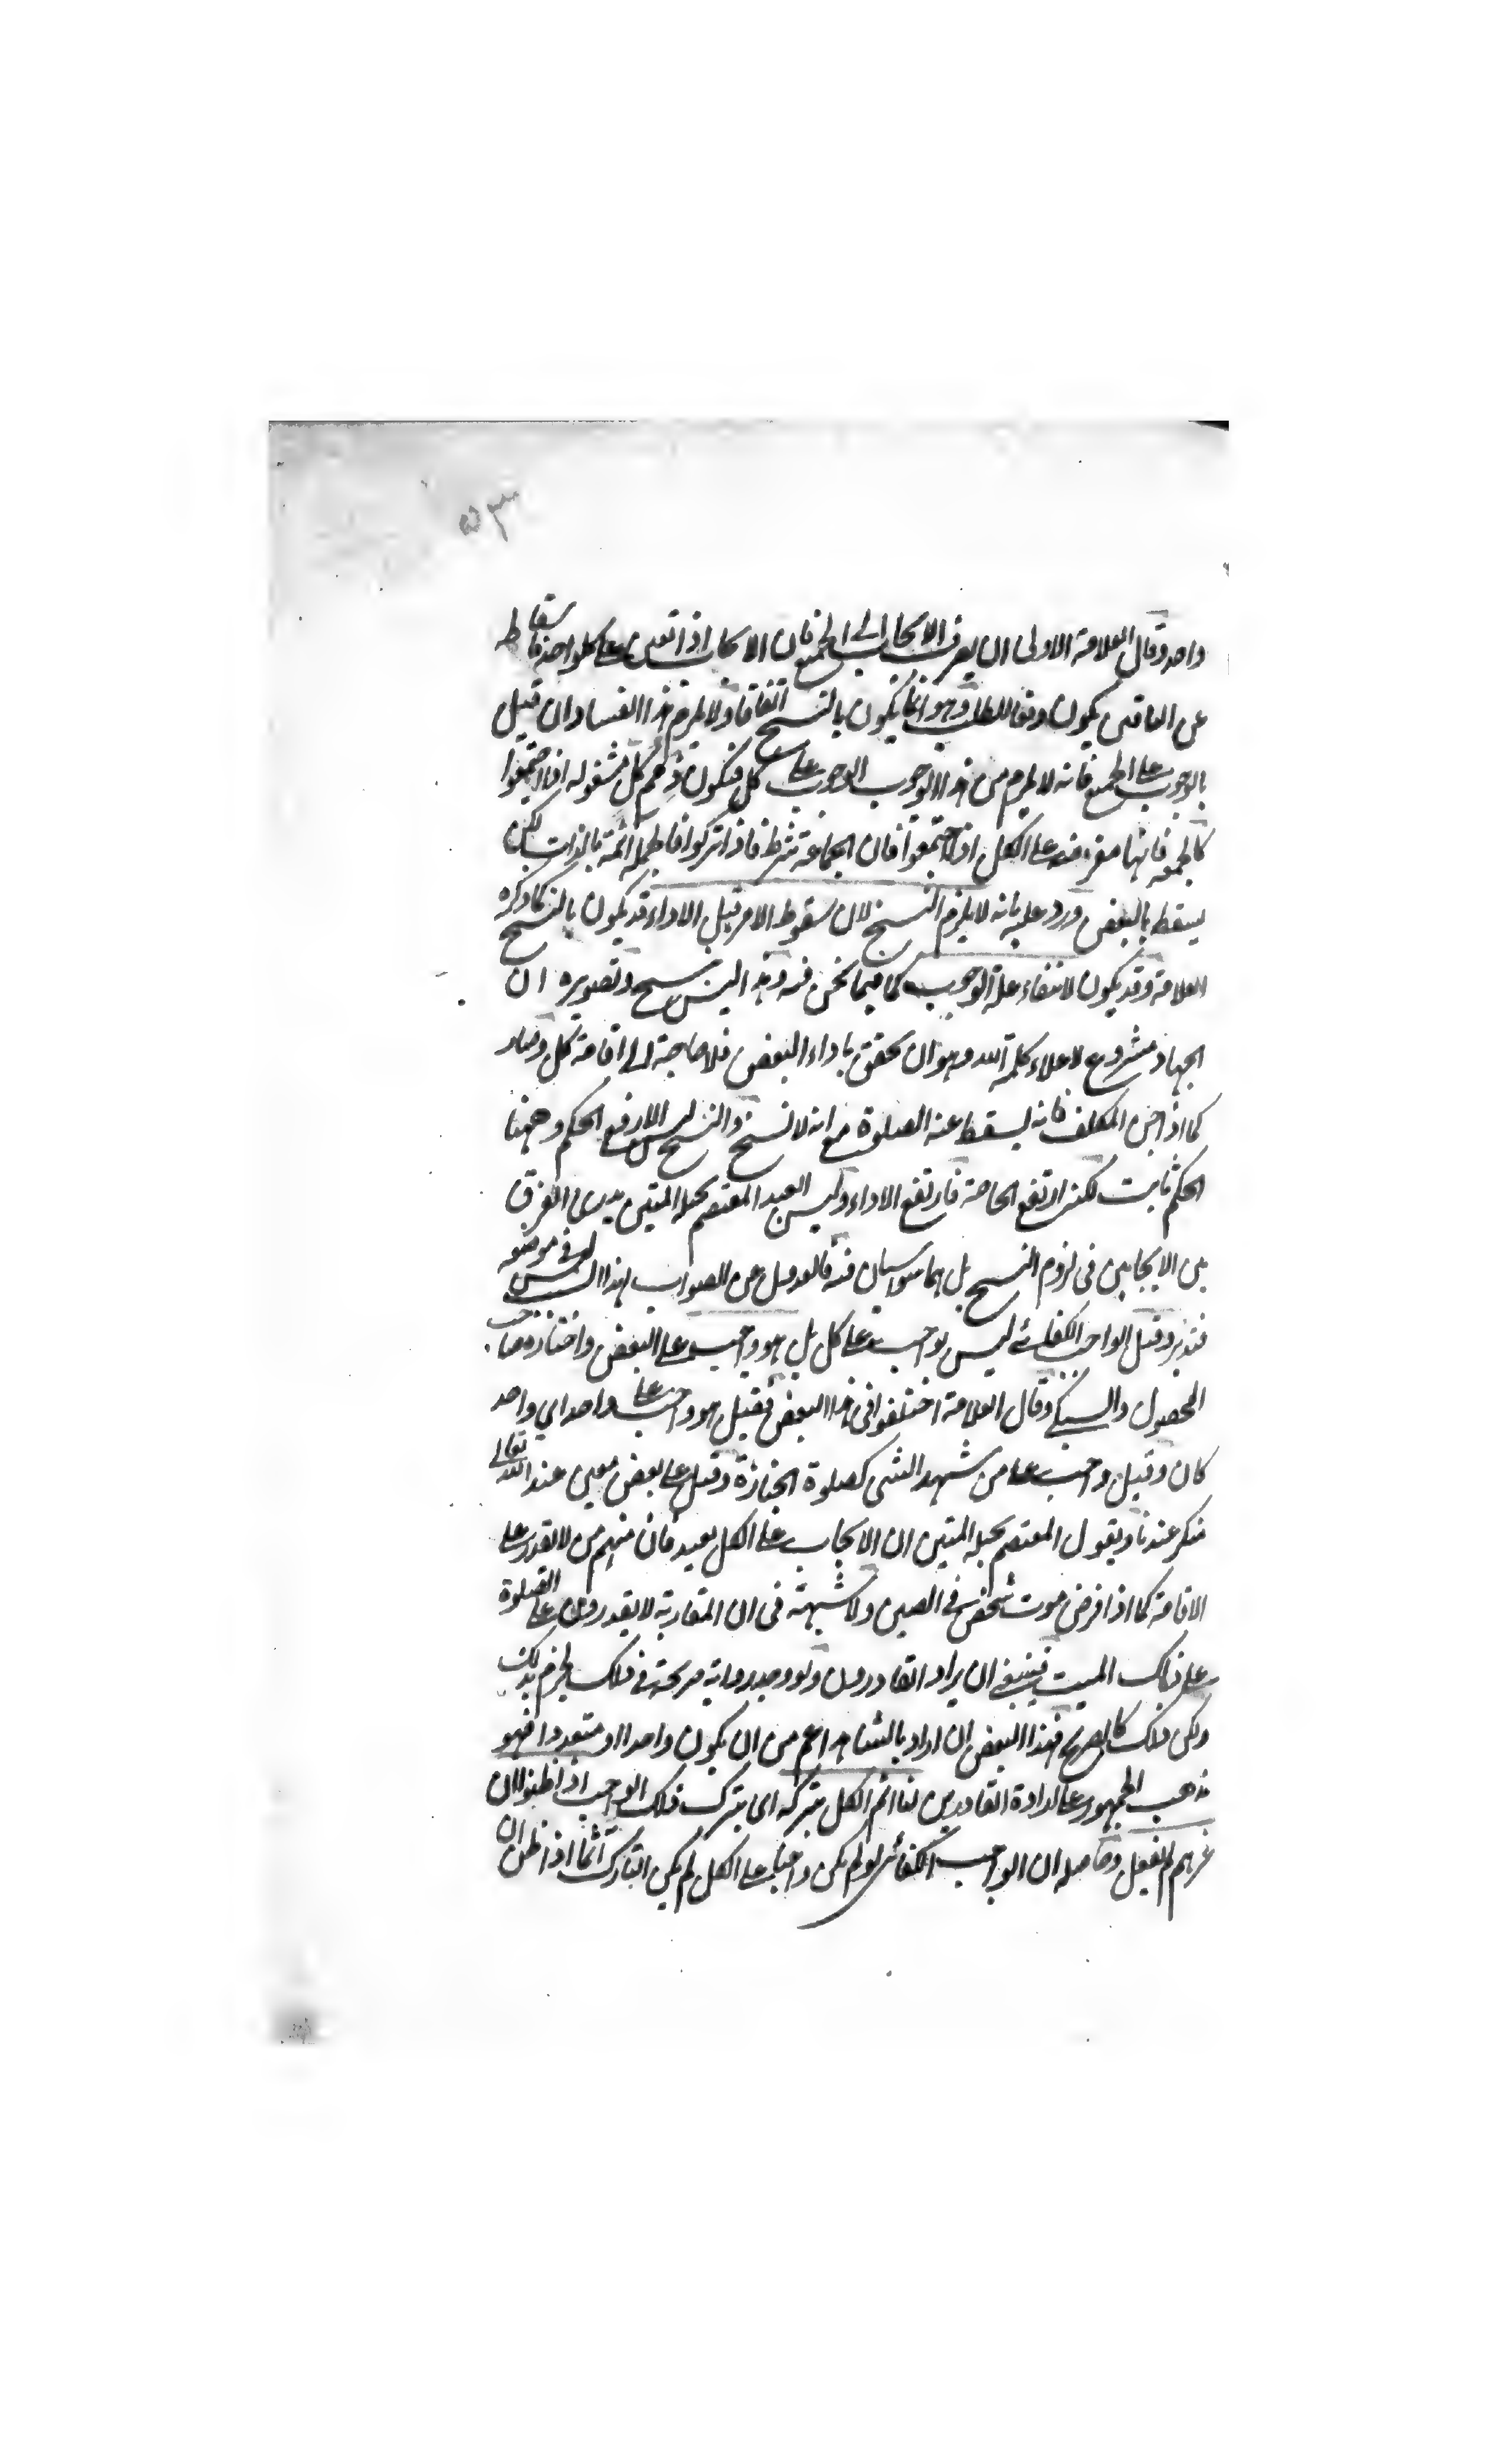 ٥٣
واحد وقال العلامة الاولى ان يصرف الايجاب الى الجميع فان الايجاب اذا تعين على كل واحد فاسقاط
عن الباقين يكون رفعا للطلب وهو انما يكون بالنسخ اتفاقا ولا يلزم هذا الفساد ان قيل
بالوجوب على الجميع فانه لا يلزم من هذا الوجوب الوجوب على كل فتكون ذمم كل مشغولة اذا اجتمعوا
كالجمعة فانها مفروضة على الكل اذا اجتمعوا فان الجماعة شرط فاذا تركوا فالجملة اثمة بالذات لكن
يسقط بالبعض ورد عليه بانه لا يلزم النسخ لان سقوط الامر قبل الاداء قد يكون بالنسخ كما ذكره
العلامة وقد يكون لانتفاء علة الوجوب كما فيما نحن فيه وهذا ليس بنسخ وتصويره ان
الجهاد مشروع لاعلاء كلمة الله وهو ان تحقق باداء البعض فلا حاجة الى اقامة كل وصار
كما اذا جن المكلف فانه يسقط عنه الصلوة مع انه لا نسخ والنسخ ليس الا رفع الحكم وههنا
الحكم ثابت لكن ارتفع الحاجة فارتفع الاداء وليس العبد المعتصم بحبله المتين يدرى الفرق
بين الايجابين فى لزوم النسخ بل هما سواسيان فيه فالعدول عن الصواب لهذا السبب ليس فى موضعه
فتدبر وقيل الواجب الكفائے ليس بواجب على كل بل هو واجب على البعض واختاره صاحب
المحصول والسبكے وقال العلامة اختلفوا فى هذا البعض فقيل هو واجب على واحد اي واحد
كان وقيل واجب على من شهد الشى كصلوة الجنازة وقيل على بعض معين عند الله تعالى
منكر عندنا ويقول المعتصم بحبله المتين ان الايجاب على الكل بعيد فان منهم من لا يقدر على
الاقامة كما اذا فرض موت شخص فى الصين ولا شبهة فى ان المغاربة لا يقدرون على الصلوة
على ذلك الميت فينبغى ان يراد القادرون ولو وجد رواية صريحة فى ذلك لجزم بذلك
ولكن ذلك كالصريح فهذا البعض ان اراد بالشاهد اعم من ان يكون واحدا او متعددا فهو
مذهب الجمهور على ارادة القادرين لنا اثم الكل بتركه اى بترك ذلك الواجب اذا ظنوا ان
غيرهم لم يفعل وحاصله ان الواجب الكفائى لو لم يكن واجبا على الكل لم يكن التارك اثما اذا ظن ان